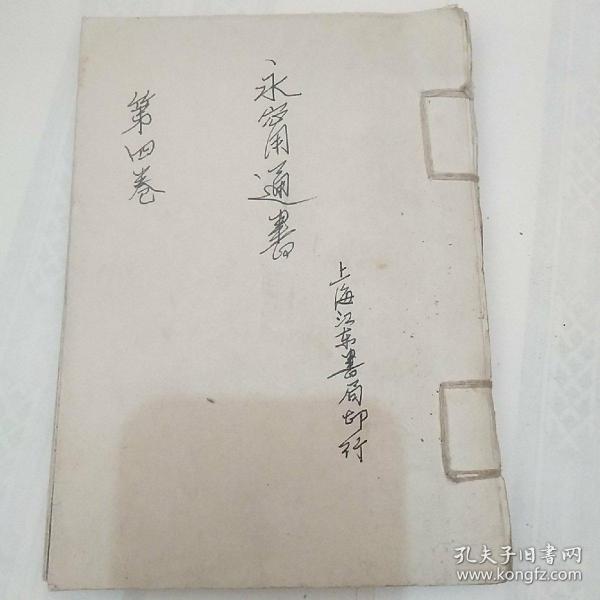 上海江东書局印行
永甯通書
第四卷
孔夫子旧書网
www.kongfz.com